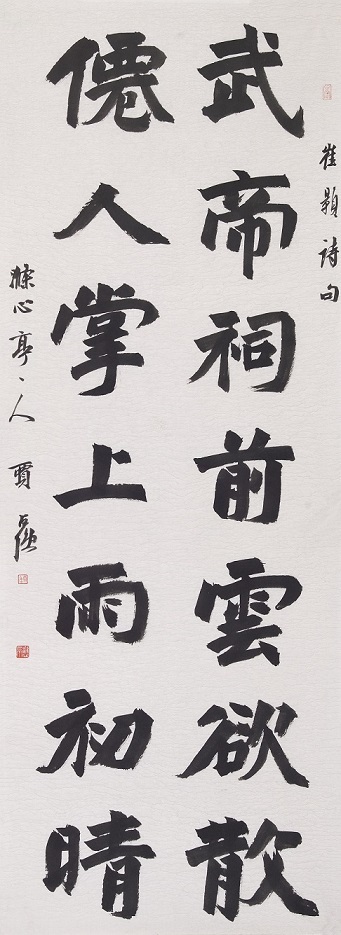 崔顥詩句
武帝祠前雲欲散
僊人掌上雨初晴
心亭人 賈